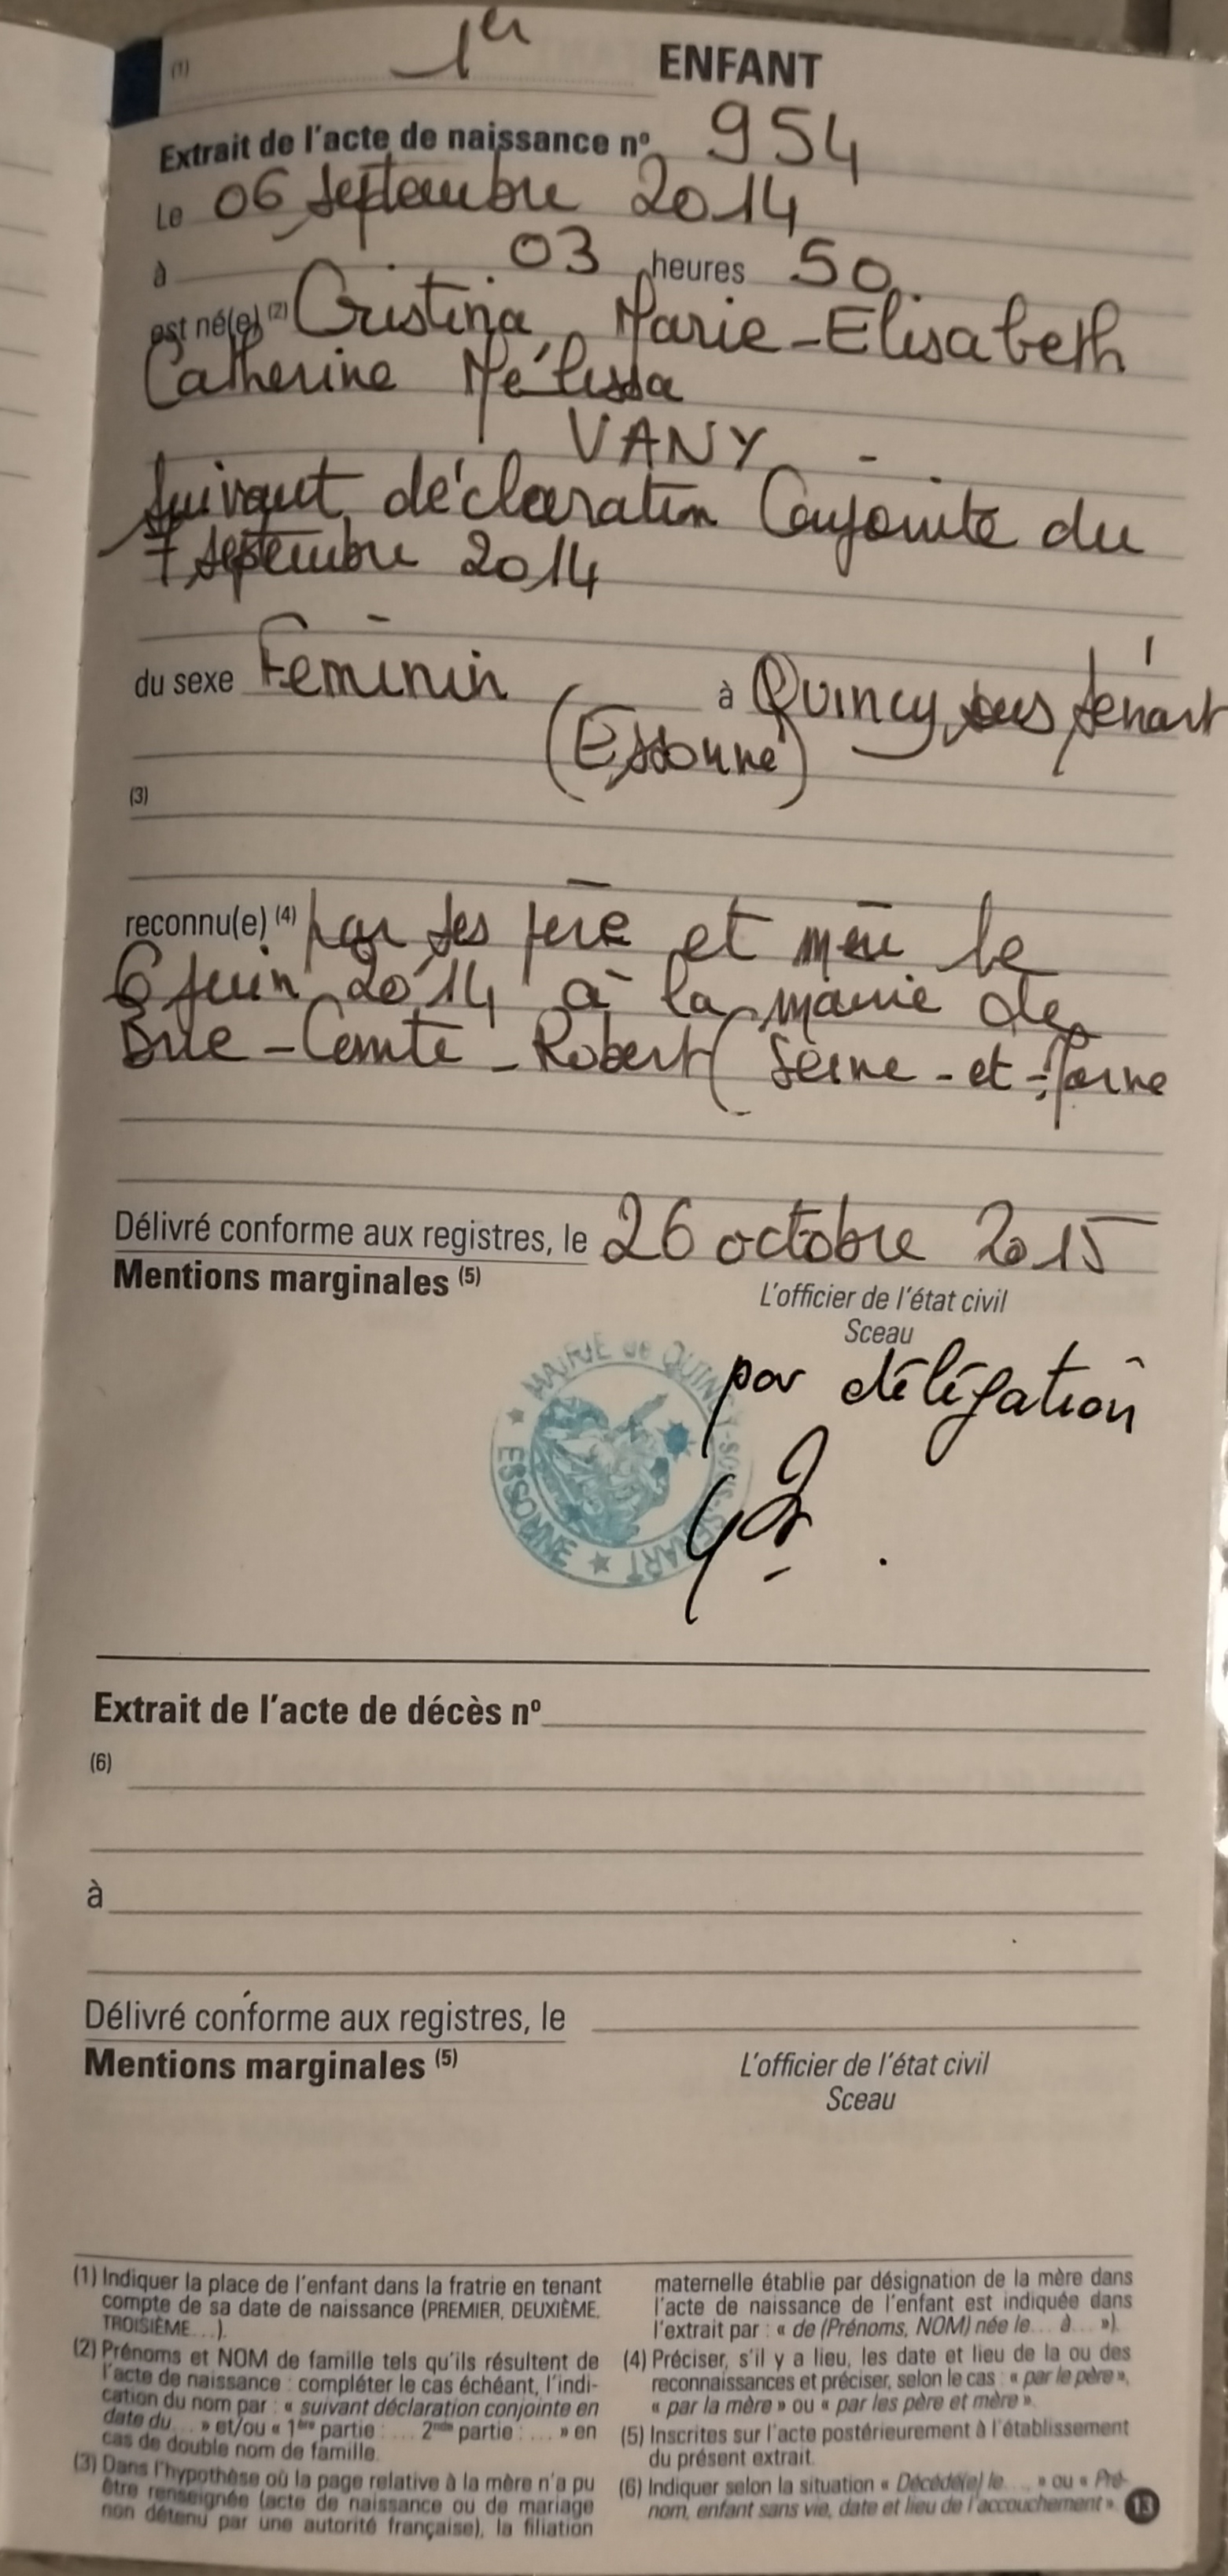 (1) 1er ENFANT
Extrait de l'acte de naissance nº 954
Le 06 Septembre 2014
à 03 heures 50
est né(e) (2) Cristina, Marie-Elisabeth
Catherine Mélissa
VANY -
Suivant déclaration Conjointe du
7 septembre 2014
du sexe Féminin à Quincy sous Sénart
(Essonne)
(3)
reconnu(e) (4) par ses père et mère le
6 Juin 2014 à la mairie de
Brie-Comte-Robert (Seine-et-Marne
Délivré conforme aux registres, le 26 octobre 2015
Mentions marginales (5)
L'officier de l'état civil
Sceau
par délégation
MAIRIE de QUINCY-SOUS-SENART
★ ESSONNE ★
Extrait de l'acte de décès nº
(6)
à
Délivré conforme aux registres, le
Mentions marginales (5)
L'officier de l'état civil
Sceau
(1) Indiquer la place de l'enfant dans la fratrie en tenant
compte de sa date de naissance (PREMIER, DEUXIÈME,
TROISIÈME...).
(2) Prénoms et NOM de famille tels qu'ils résultent de
l'acte de naissance : compléter le cas échéant, l'indi-
cation du nom par : « suivant déclaration conjointe en
date du... » et/ou « 1ère partie : .... 2nde partie : .... » en
cas de double nom de famille.
(3) Dans l'hypothèse où la page relative à la mère n'a pu
être renseignée (acte de naissance ou de mariage
non détenu par une autorité française), la filiation
maternelle établie par désignation de la mère dans
l'acte de naissance de l'enfant est indiquée dans
l'extrait par : « de (Prénoms, NOM) née le... à... »).
(4) Préciser, s'il y a lieu, les date et lieu de la ou des
reconnaissances et préciser, selon le cas : « par le père »,
« par la mère » ou « par les père et mère ».
(5) Inscrites sur l'acte postérieurement à l'établissement
du présent extrait.
(6) Indiquer selon la situation « Décédé(e) le.... » ou « Pré-
nom, enfant sans vie, date et lieu de l'accouchement ».
13